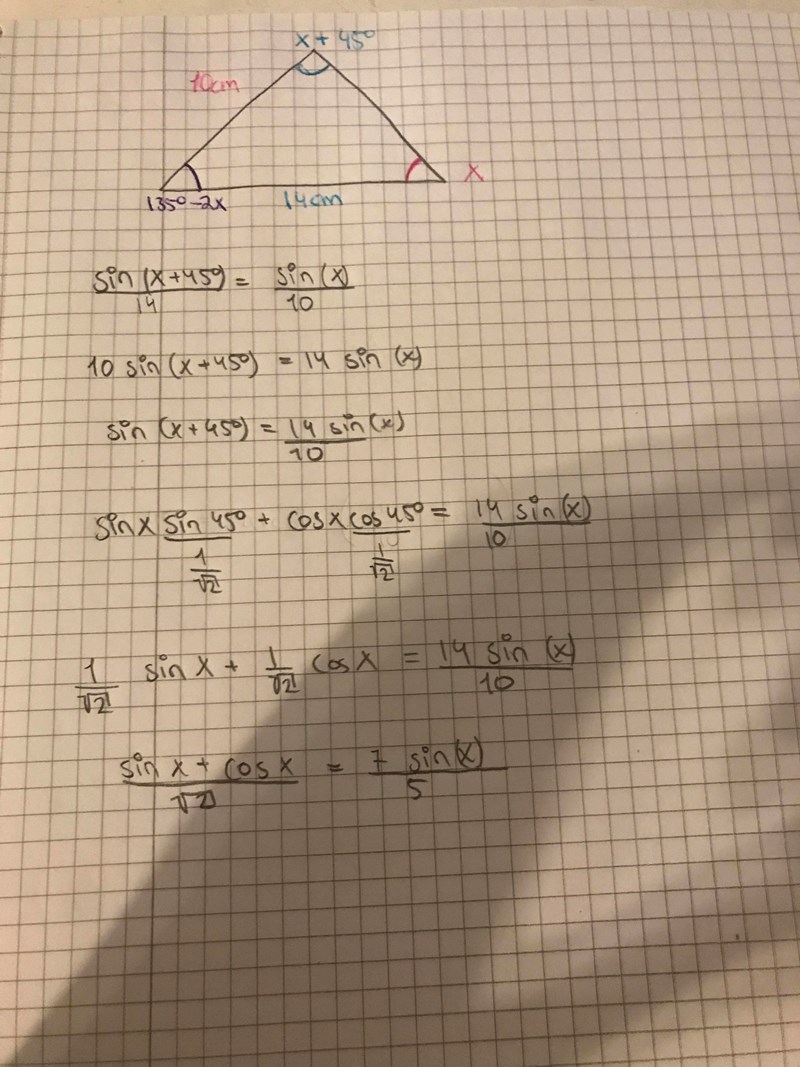 x + 45°
10cm
x
135°-2x
14cm
sin (x+45°) / 14 = sin (x) / 10
10 sin (x+45°) = 14 sin (x)
sin (x+45°) = 14 sin(x) / 10
sin x sin 45° + cos x cos 45° = 14 sin(x) / 10
1/√2 1/√2
1/√2 sin x + 1/√2 cos x = 14 sin (x) / 10
sin x + cos x / √2 = 7 sin(x) / 5